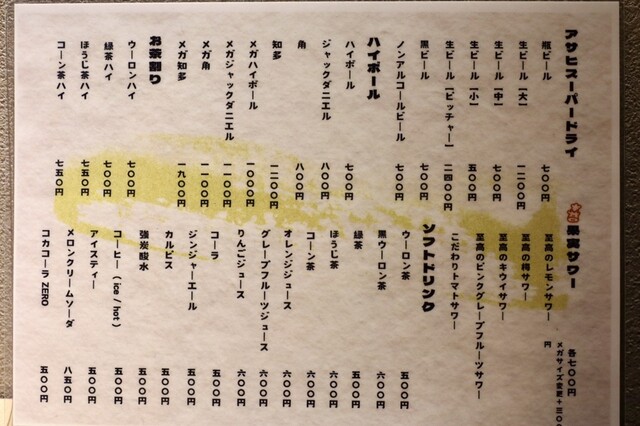 アサヒスーパードライ
瓶ビール 七〇〇円
生ビール【大】 一二〇〇円
生ビール【中】 七〇〇円
生ビール【小】 五〇〇円
生ビール【ピッチャー】 二四〇〇円
黒ビール 七〇〇円
ノンアルコールビール 七〇〇円
ハイボール
ハイボール 七〇〇円
ジャックダニエル 八〇〇円
角 八〇〇円
知多 一二〇〇円
メガハイボール 一〇〇〇円
メガジャックダニエル 一一〇〇円
メガ角 一一〇〇円
メガ知多 一九〇〇円
お茶割り
ウーロンハイ 七〇〇円
緑茶ハイ 七〇〇円
ほうじ茶ハイ 七五〇円
コーン茶ハイ 七五〇円
果実サワー
各七〇〇円
メガサイズ変更+三〇〇円
至高のレモンサワー
至高の樽サワー
至高のキウイサワー
至高のピンクグレープフルーツサワー
こだわりトマトサワー
ソフトドリンク
ウーロン茶 五〇〇円
黒ウーロン茶 六〇〇円
緑茶 五〇〇円
ほうじ茶 六〇〇円
コーン茶 六〇〇円
オレンジジュース 六〇〇円
グレープフルーツジュース 六〇〇円
りんごジュース 六〇〇円
コーラ 五〇〇円
ジンジャーエール 五〇〇円
カルピス 五〇〇円
強炭酸水 五〇〇円
コーヒー(ice/hot) 五〇〇円
アイスティー 五〇〇円
メロンクリームソーダ 八五〇円
コカコーラ ZERO 五〇〇円